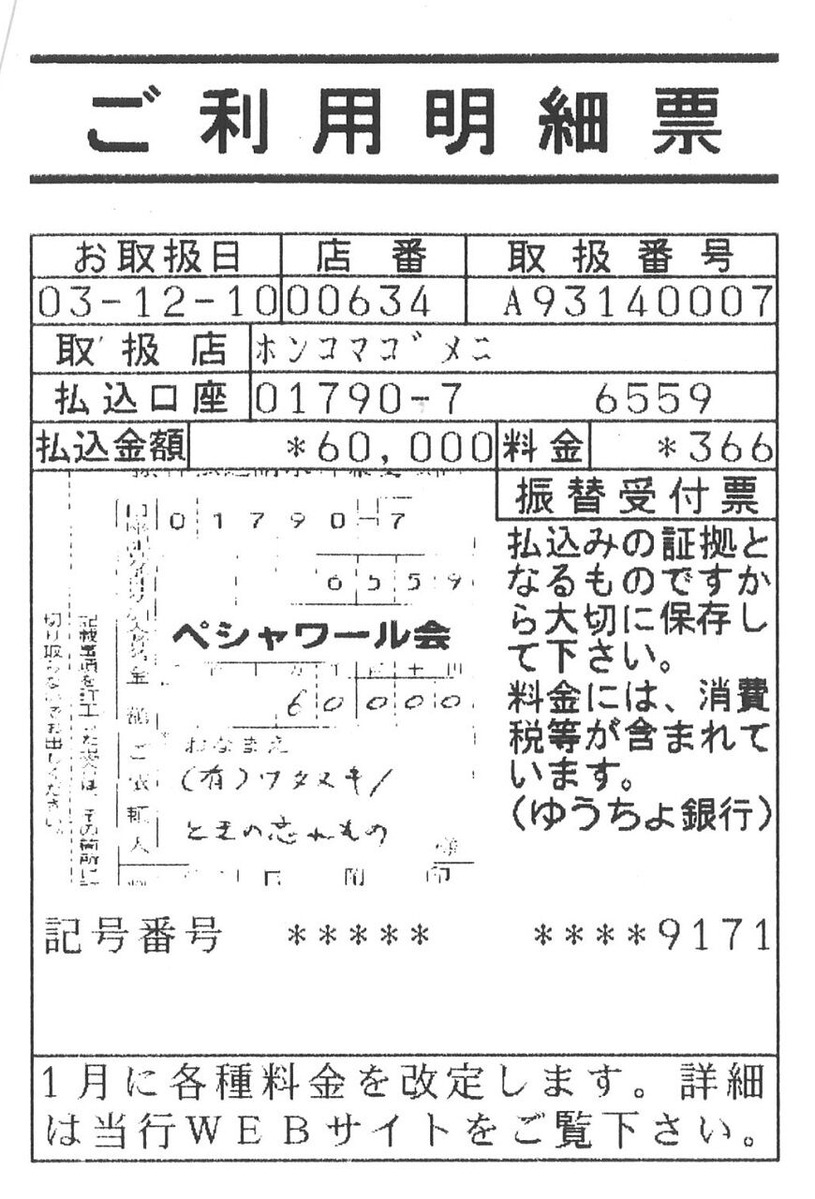 ご利用明細票
お取扱日 店番 取扱番号
03-12-10 00634 A93140007
取扱店 ホンコマゴメニ
払込口座 01790-7 6559
払込金額 *60,000 料金 *366
振替受付票
払込みの証拠と
なるものですか
ら大切に保存し
て下さい。
料金には、消費
税等が含まれて
います。
(ゆうちょ銀行)
01790-7
6559
ペシャワール会
60000
おなまえ
(有)ワタヌキ/
ときの忘れもの
様
記号番号 ***** ****9171
1月に各種料金を改定します。詳細
は当行WEBサイトをご覧下さい。